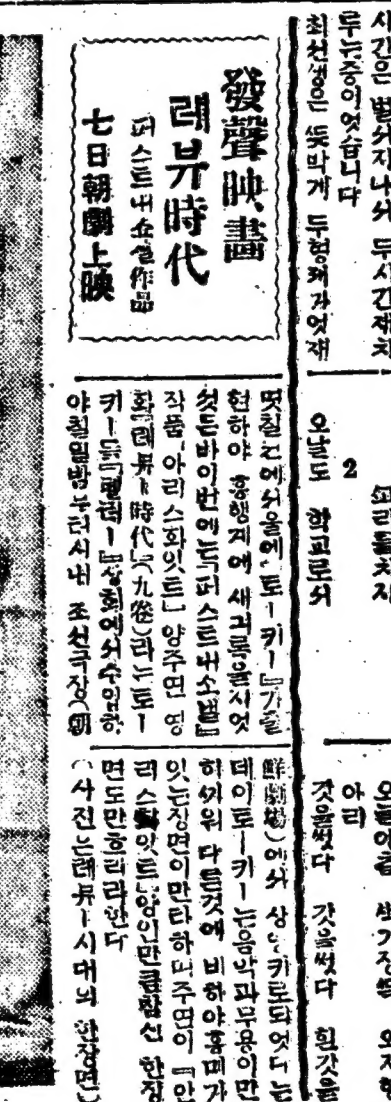 시간은 벌서지나서 두시간재치
두는중이엇습니다
최선생은 뜻막게 두형제가엇재
2
오날도 학교로서
아리
갓을썻다 갓을썻다 흰갓을
發聲映畵
레뷰時代
퍼스트내쇼낼作品
七日朝劇上映
몃칠전에서울에『토ー키ー』가출
현하야 흥행게에 새긔록을지엇
것든바이번에는『퍼스트내쇼낼』
작품『아리스화잇트』양주연 영
화『레뷰ー時代』(九卷)라는토ー
키ー를『펠러ー』상회에서수입하
야칠일밤부터시내 조선극장(朝
鮮劇場)에서 상영키로되엇다는
데이토ー키ー는음악과무용이만
히석위 다른것에 비하야흥미가
잇는장면이만타하며주연이『안
리스화잇트』양이만큼참신한장
면도만흐리라한다
(사진은레뷰ー시대의 한장면)